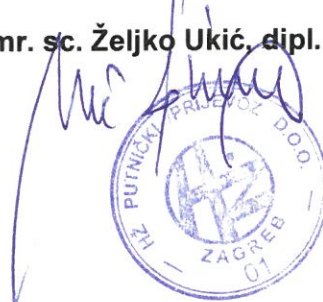 mr. sc. Željko Ukić, dipl.
HŽ PUTNIČKI PRIJEVOZ D.O.O.
HŽ
ZAGREB
01